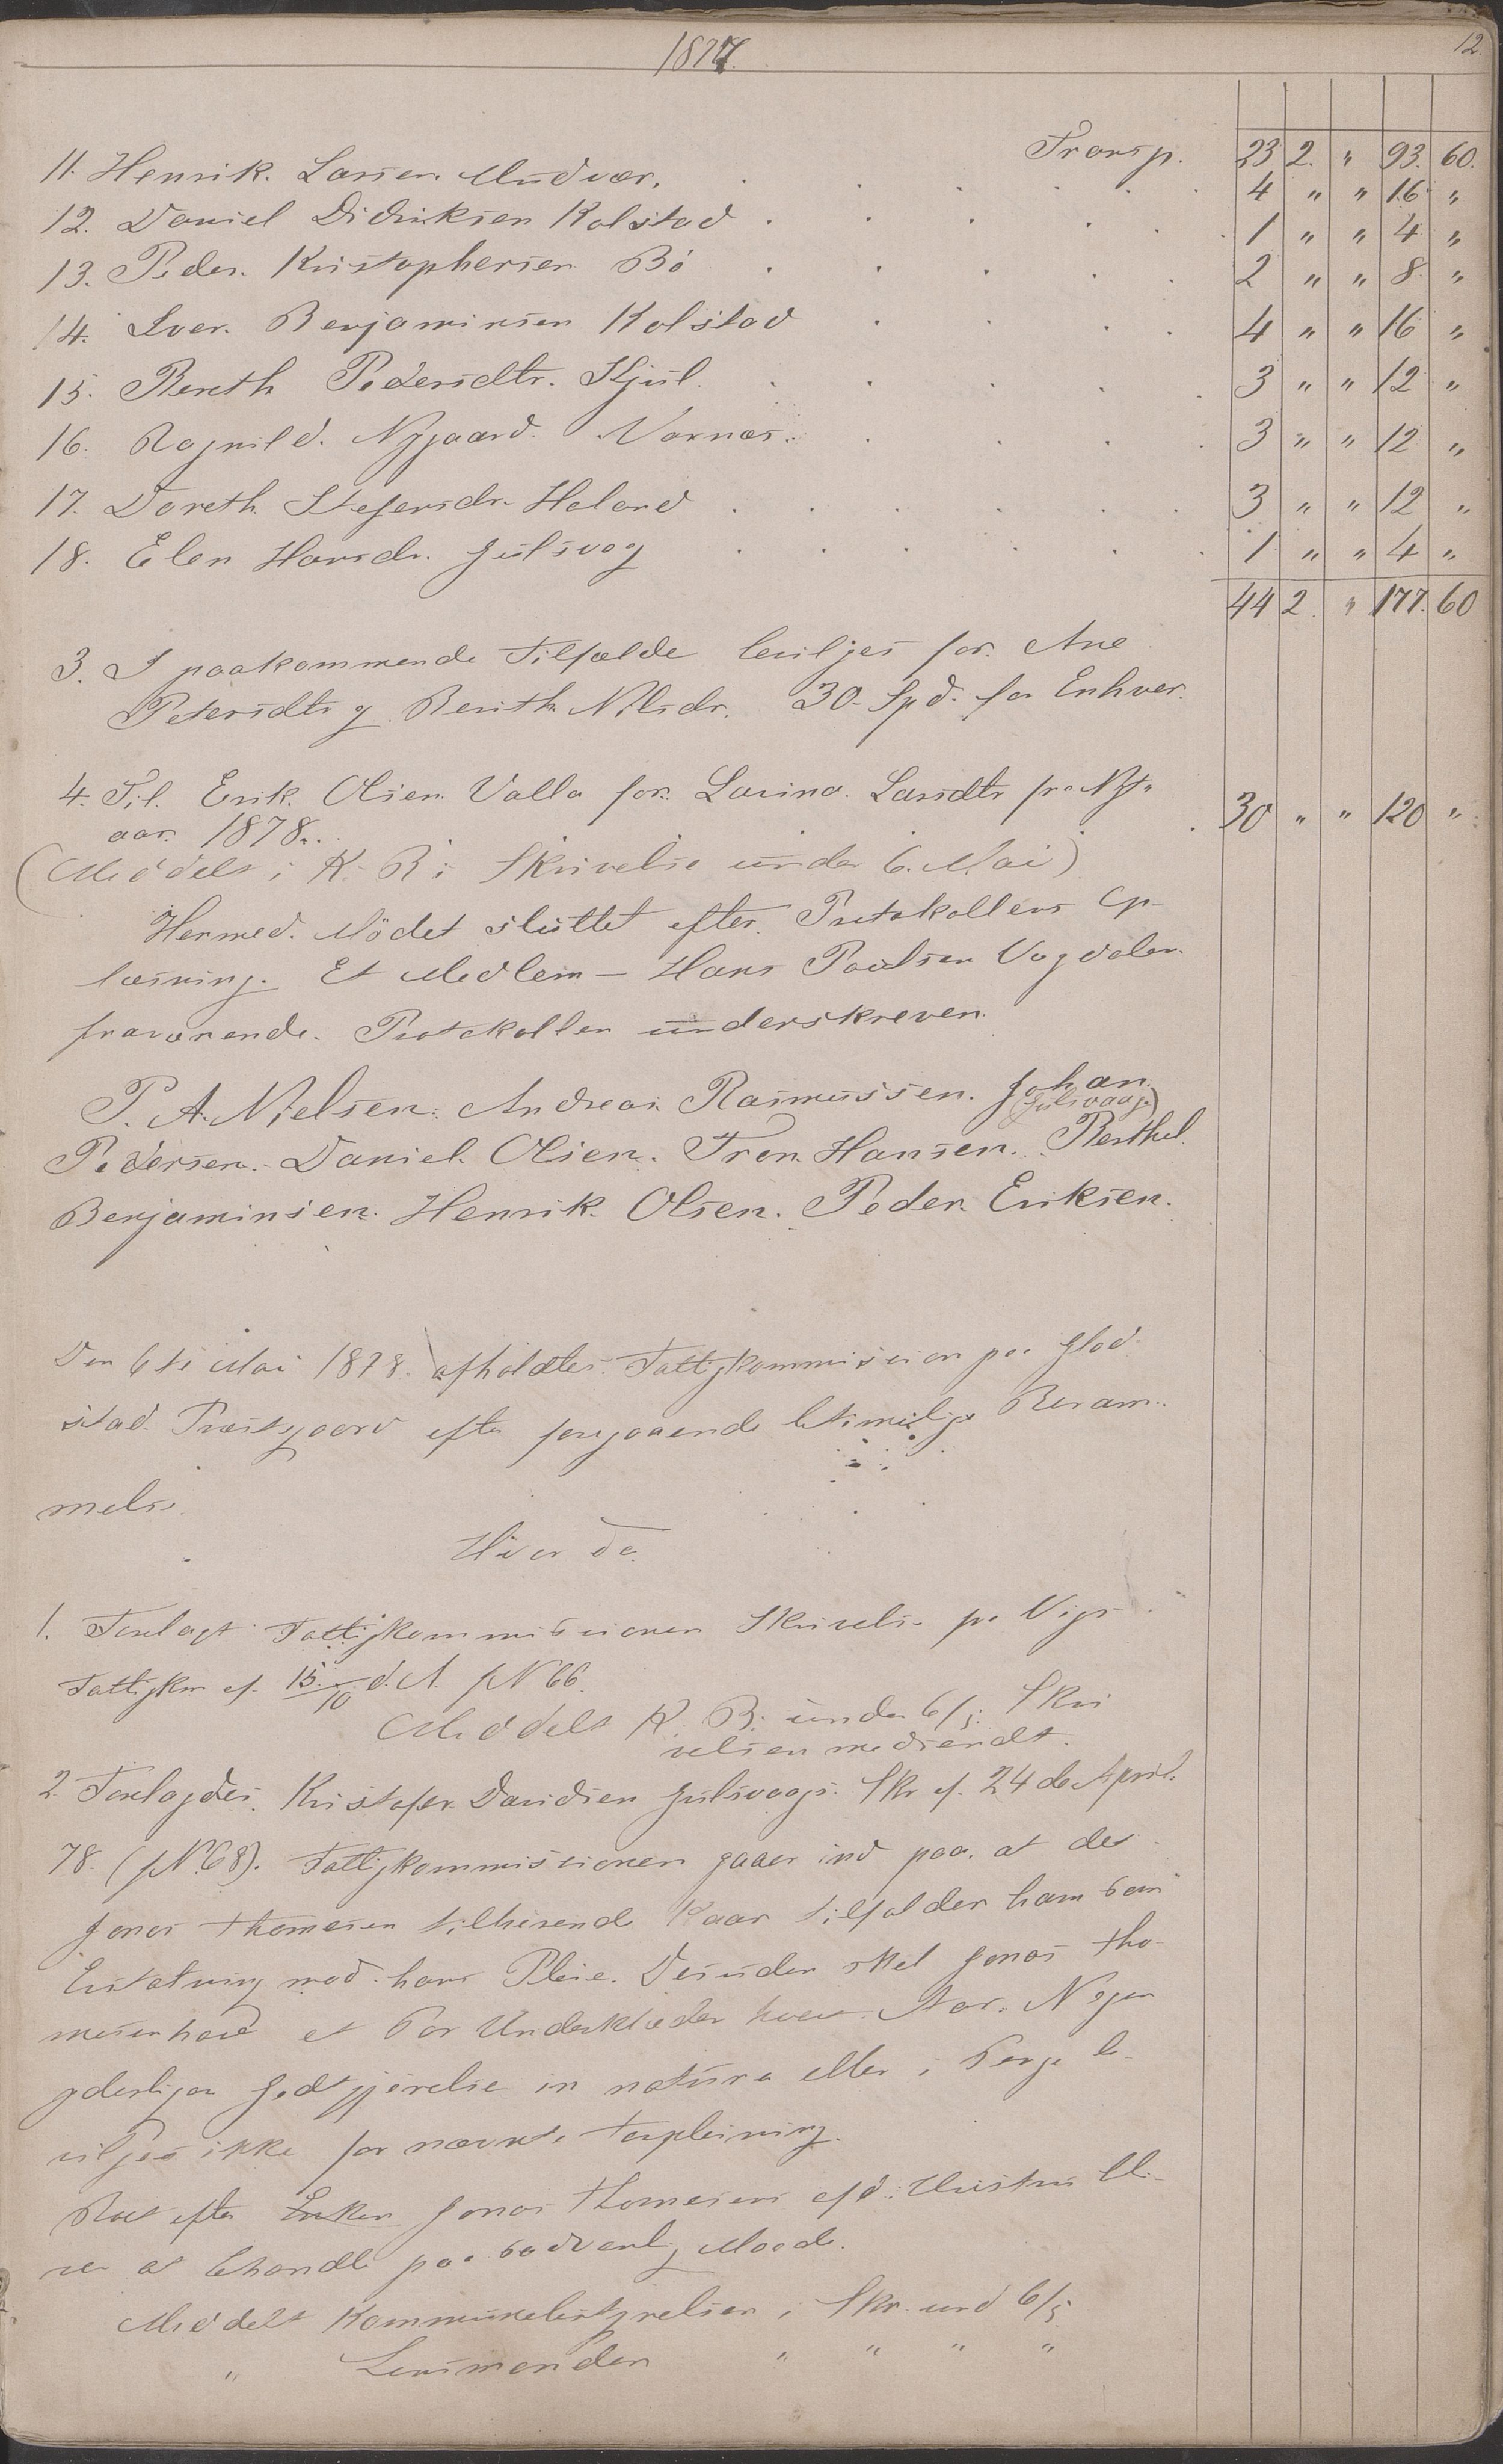 1877.
12.
Transp. 23 2. " 93. 60.
11. Henrik. Larsen. Mudvær. 4 " " 16 "
12. Daniel Didriksen Kolstad 1 " " 4 "
13. Peder. Kristophersen Bö 2 " " 8 "
14. Iver. Benjaminsen Kolstad 4 " " 16 "
15. Bereth Pedersdtr. Skjul. 3 " " 12 "
16. Ragnild. Nygaard. Vornæs. 3 " " 12 "
17. Doreth. Stefensdr. Haland 3 " " 12 "
18. Elen Hansdr. Julsvog 1 " " 4 "
44 2. " 177. 60
3. I paakommende Tilfælde beviljes for. Ane
Petersdtr og Berith Nilsdr. 30. Spd. for Enhver.
4. Til. Erik. Olsen. Valla for. Lovina. Larsdtr fra Nyt-
aar. 1878. 30 " " 120 "
(Meddelt i K. B. i Skrivelse under 6. Mai)
Hermed. Mödet sluttet efter. Protokollens Op-
læsning. Et Medlem — Hans Paulsen Vogdalen.
fraværende. Protokollen underskreven.
P. A. Nielsen. Andreas Rasmussen. Johan.
(Julsvaag)
Pedersen. Daniel. Olsen. Tron Hansen. Berthel.
Benjaminsen. Henrik. Olsen. Peder. Eriksen.
Den 6te Mai 1878. afholdtes. Fattigkommission paa Glad-
stad. Præstegaard efter foregaaende betimelige Beram-
melse.
Hvor da.
1. Forelagt Fattigkommissionen Skrivelse fra Vigs
Fattigkom af. 15/10 d. A. JN 66.
Meddelt K. B. under 6/5. Skri
velsen medsendt.
2 Forelagdes. Kristofer Davidsen Julsvaags. Skr af. 24de April.
78. (JN. 68). Fattigkommissionen gaaer ind paa. at det
Jonas Thomesen tilhørende Kaar tilfalder ham som
Erstatning mod. hans Pleie. Desuden skal Jonas Tho-
mesen have et Par Underklæder hvert Aar. Nogen
yderligere Godtgjørelse in natura eller i Penge be-
viljes ikke for nævnte Forpleining.
Boet efter Enken Jonas Thomesens afd. Hustru bli-
ver at behandle paa sædvanlig Maade.
Meddelt Kommunebestyrelsen i Skr. und 6/5
" Lensmanden " " " "